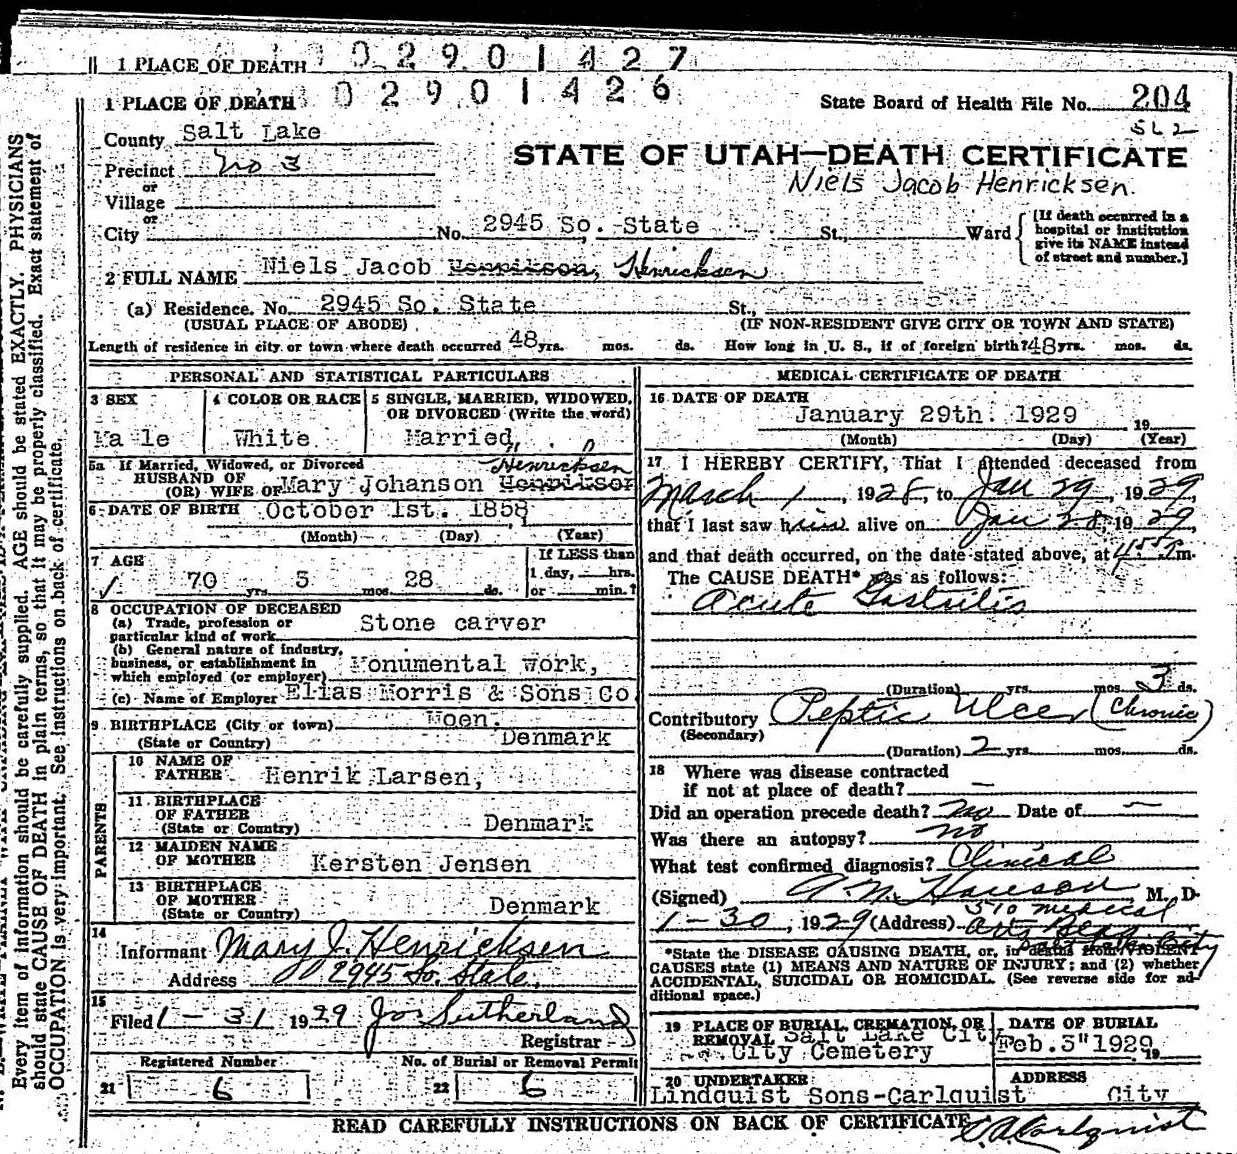 1 PLACE OF DEATH 02901427
1 PLACE OF DEATH 02901426
State Board of Health File No. 204
SL 2
County Salt Lake
STATE OF UTAH—DEATH CERTIFICATE
Precinct No 3
Niels Jacob Henricksen.
or
Village
or
City No. 2945 So. State St., Ward
[If death occurred in a hospital or institution give its NAME instead of street and number.]
2 FULL NAME Niels Jacob Henrikson, Henricksen
(a) Residence. No. 2945 So. State St.,
(USUAL PLACE OF ABODE) (IF NON-RESIDENT GIVE CITY OR TOWN AND STATE)
Length of residence in city or town where death occurred 48 yrs. mos. ds. How long in U. S., if of foreign birth? 48 yrs. mos. ds.
PERSONAL AND STATISTICAL PARTICULARS
3 SEX
Male
4 COLOR OR RACE
White
5 SINGLE, MARRIED, WIDOWED, OR DIVORCED (Write the word)
Married,
5a If Married, Widowed, or Divorced
HUSBAND OF
(OR) WIFE OF Mary Johanson Henrikson Henricksen
6 DATE OF BIRTH October 1st. 1858
(Month) (Day) (Year)
7 AGE
70 yrs. 3 mos. 28 ds.
If LESS than
1 day, hrs.
or min.?
8 OCCUPATION OF DECEASED
(a) Trade, profession or
particular kind of work Stone carver
(b) General nature of industry,
business, or establishment in
which employed (or employer) Monumental work,
(c) Name of Employer Elias Morris & Sons Co
9 BIRTHPLACE (City or town) Moen.
(State or Country) Denmark
PARENTS
10 NAME OF
FATHER Henrik Larsen,
11 BIRTHPLACE
OF FATHER
(State or Country) Denmark
12 MAIDEN NAME
OF MOTHER Kersten Jensen
13 BIRTHPLACE
OF MOTHER
(State or Country) Denmark
14
Informant Mary J. Henricksen
Address 2945 So. State.
15
Filed 1-31 1929 Jos Sutherland
Registrar
Registered Number
21 6
No. of Burial or Removal Permit
22 6
MEDICAL CERTIFICATE OF DEATH
16 DATE OF DEATH
January 29th. 1929 19
(Month) (Day) (Year)
17 I HEREBY CERTIFY, That I attended deceased from
March 1, 1928, to Jan 29, 1929,
that I last saw him alive on Jan 28, 1929,
and that death occurred, on the date stated above, at 4 55 P m.
The CAUSE DEATH* was as follows:
Acute Gastritis
(Duration) yrs. mos. 3 ds.
Contributory Peptic Ulcer (Chronic)
(Secondary)
(Duration) 2 yrs. mos. ds.
18 Where was disease contracted
if not at place of death? —
Did an operation precede death? No Date of —
Was there an autopsy? no
What test confirmed diagnosis? Clinical
(Signed) M. D.
1-30, 1929 (Address) 510 Medical
Arts Bldg
Salt Lake City
*State the DISEASE CAUSING DEATH, or, in deaths from VIOLENT
CAUSES state (1) MEANS AND NATURE OF INJURY; and (2) whether
ACCIDENTAL, SUICIDAL OR HOMICIDAL. (See reverse side for additional space.)
19 PLACE OF BURIAL, CREMATION, OR
REMOVAL Salt Lake Cit
City Cemetery
DATE OF BURIAL
Feb. 3" 1929 19
20 UNDERTAKER
Lindquist Sons-Carlquist
ADDRESS
City
READ CAREFULLY INSTRUCTIONS ON BACK OF CERTIFICATE
C. A. Carlquist
Every item of information should be carefully supplied. AGE should be stated EXACTLY. PHYSICIANS
should state CAUSE OF DEATH in plain terms, so that it may be properly classified. Exact statement of
OCCUPATION is very important. See instructions on back of certificate.